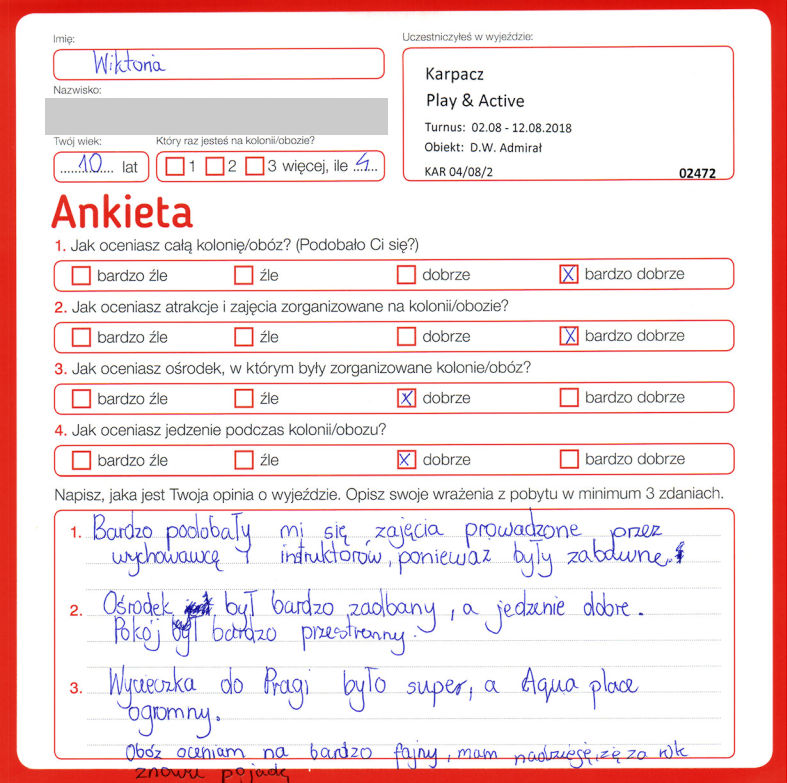 Imię:
Wiktoria
Nazwisko:
Twój wiek:
.......10.... lat
Który raz jesteś na kolonii/obozie?
1 2 3 więcej, ile ..4...
Uczestniczyłeś w wyjeździe:
Karpacz
Play & Active
Turnus: 02.08 - 12.08.2018
Obiekt: D.W. Admirał
KAR 04/08/2 02472
Ankieta
1. Jak oceniasz całą kolonię/obóz? (Podobało Ci się?)
bardzo źle źle dobrze X bardzo dobrze
2. Jak oceniasz atrakcje i zajęcia zorganizowane na kolonii/obozie?
bardzo źle źle dobrze X bardzo dobrze
3. Jak oceniasz ośrodek, w którym były zorganizowane kolonie/obóz?
bardzo źle źle X dobrze bardzo dobrze
4. Jak oceniasz jedzenie podczas kolonii/obozu?
bardzo źle źle X dobrze bardzo dobrze
Napisz, jaka jest Twoja opinia o wyjeździe. Opisz swoje wrażenia z pobytu w minimum 3 zdaniach.
1. Bardzo podobały mi się zajęcia prowadzone przez
wychowawcę i instruktorów, ponieważ były zabawne.
2. Ośrodek był bardzo zadbany, a jedzenie dobre.
Pokój był bardzo przestronny.
3. Wycieczka do Pragi było super, a Aqua place
ogromny.
Obóz oceniam na bardzo fajny, mam nadzieję, że za rok
znowu pojadę